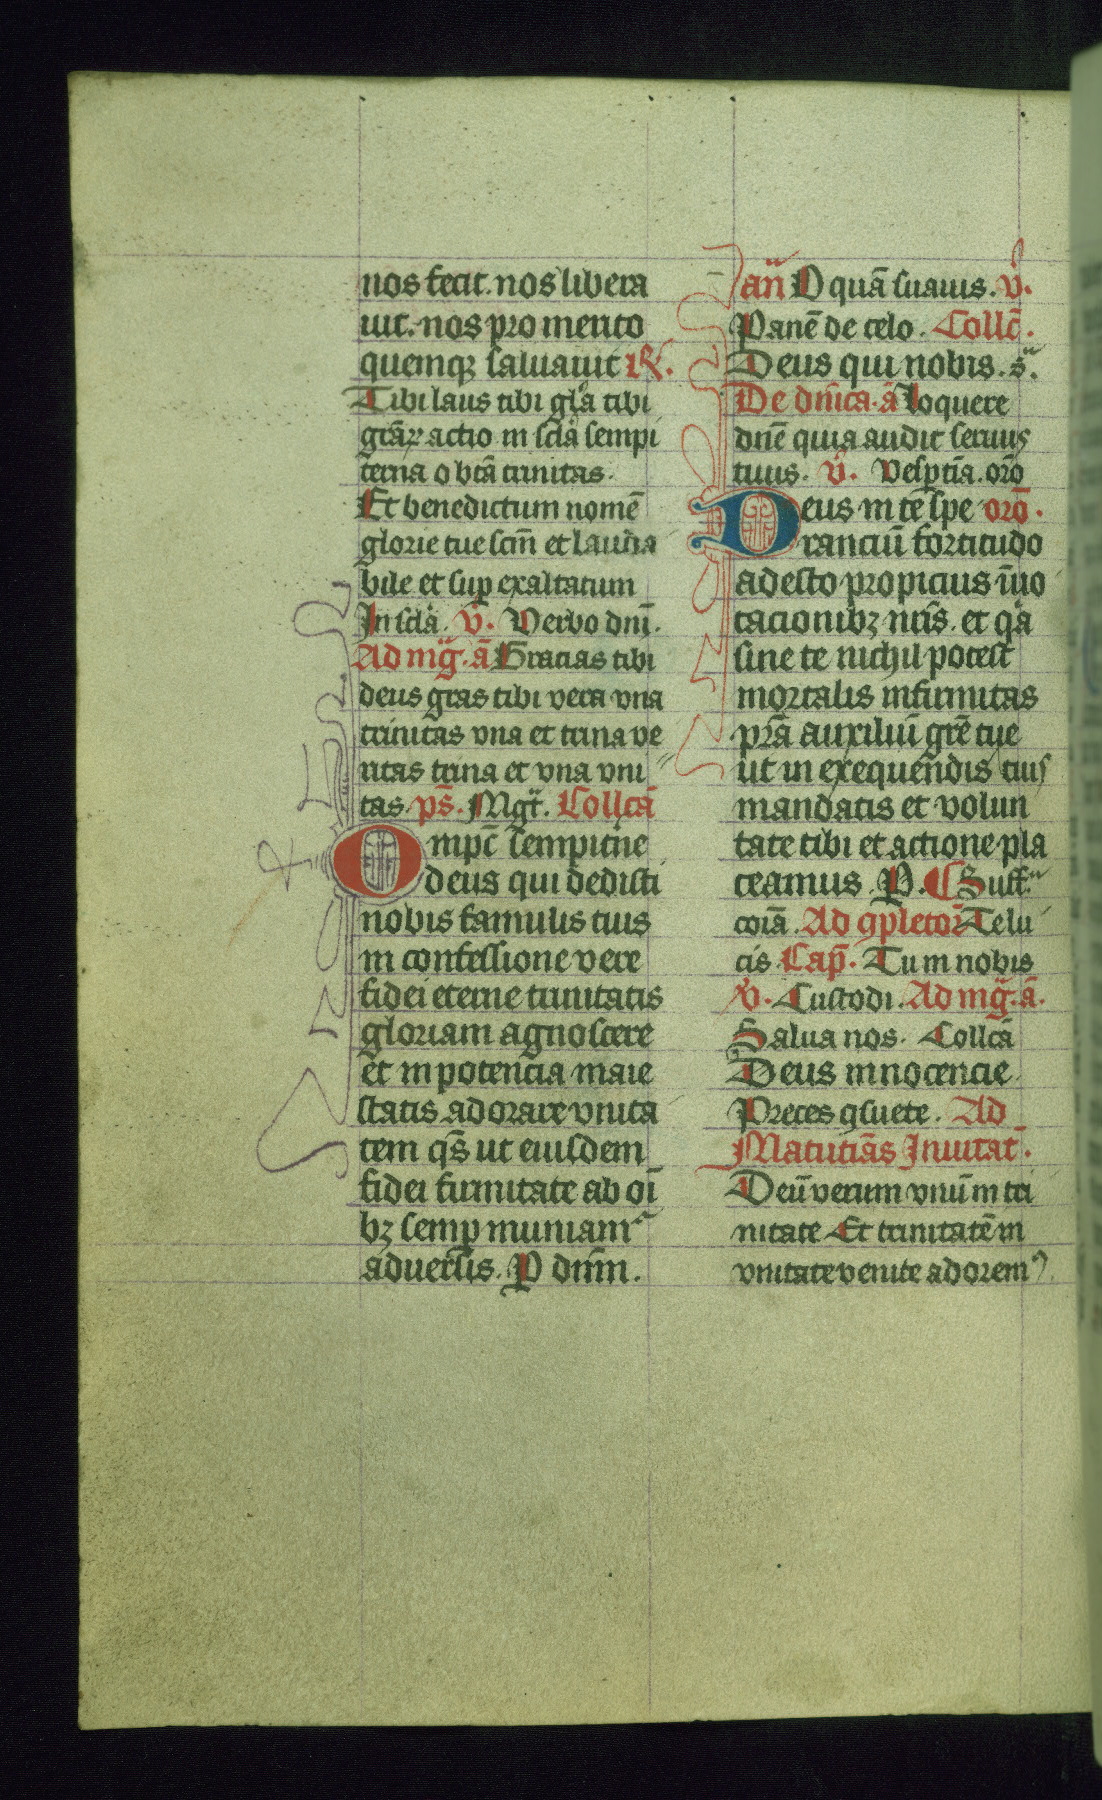 nos fecit. nos libera
uit. nos pro merito
quemqꝫ saluauit ℟.
Tibi laus tibi gl̄a tibi
gr̄aꝝ actio in scl̄a sempi
terna o bt̄a trinitas.
Et benedictum nomē
glorie tue scm̄ et lauda
bile et suꝑ exaltatum
In scl̄a. v̄. Verbo dn̄i.
Ad mg̃. ā Gracias tibi
deus gr̄as tibi vera vna
trinitas vna et trina ve
ritas trina et vna vni
tas. ps̄. Mgt̃. Collcā
Omp̄c sempit̄ne
deus qui dedisti
nobis famulis tuis
in confessione vere
fidei eterne trinitatis
gloriam agnoscere
et in potencia maie
statis adorare vnita
tem qs̄ ut eiusdem
fidei firmitate ab oī
bꝫ semꝑ muniamᷣ
aduersis. P dn̄m.
an̄ O quā suauis. v̄.
Panē de celo. Collc̄.
Deus qui nobis. s̃.
De dn̄ica. ā Loquere
dn̄e quia audit seruus
tuus. v̄. Vesꝑtīa. orō
Deus in te spe orō.
ranciū fortitudo
adesto propicius īuo
tacionibꝫ nr̄is. et qͣ
sine te nichil potest
mortalis infirmitas
pr̄a auxiliū gr̄e tue
ut in exequendis tuis
mandatis et volun
tate tibi et actione pla
ceamus. P. Suff̃
coīa. Ad ꝯpletor̄ Te lu
cis. Cap̄. Tu in nobis
v̄. Custodi. Ad mg̃. ā.
Salua nos. Collcā
Deus innocencie
Preces ꝯsuete. Ad
Matutīas Inuitat̄.
Deū verum vnū in tri
nitate Et trinitatē in
vnitate venite adoremꝰ.